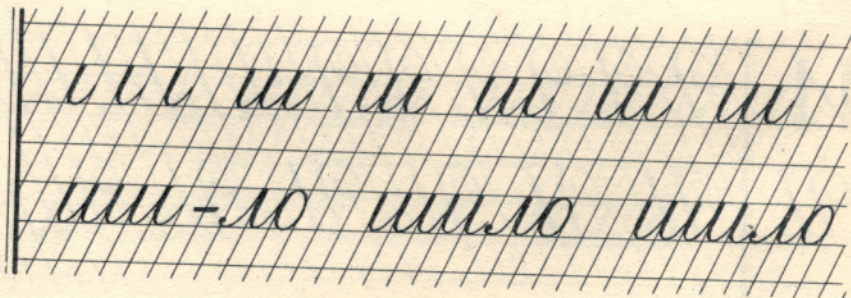 ш ш ш ш ш
ши-ло шило шило